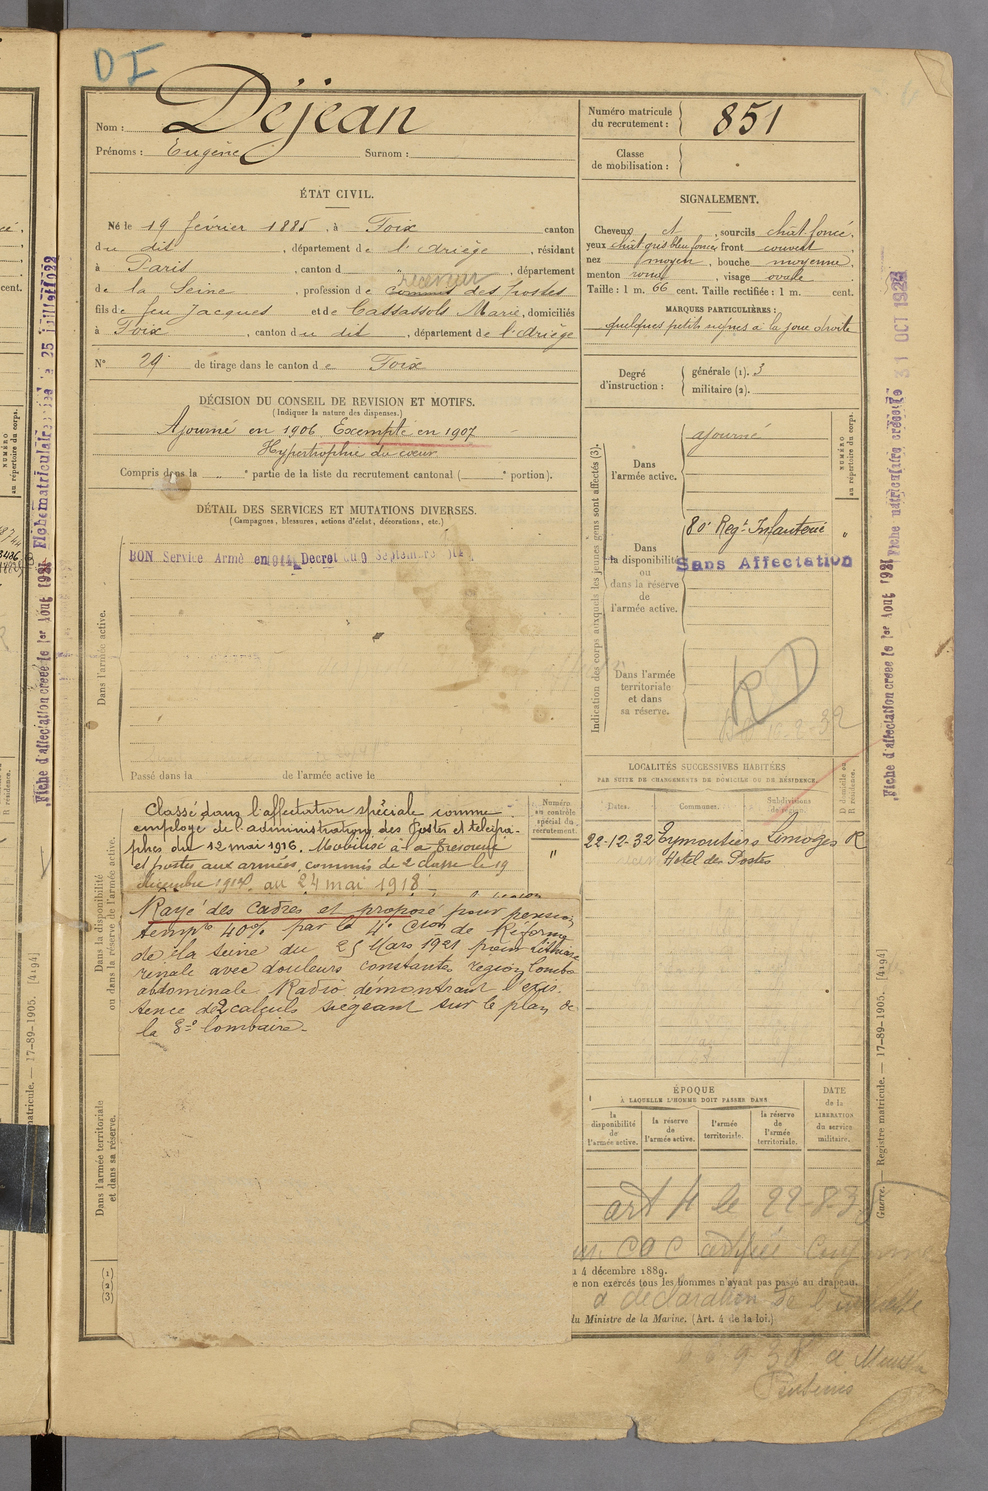 DI
Nom : Déjean
Prénoms : Eugène Surnom :
Numéro matricule du recrutement : 851
Classe de mobilisation :
ÉTAT CIVIL.
Né le 19 février 1885, à Foix canton
du dit, département de l'Ariège, résidant
à Paris, canton d ", département
receveur
de la Seine, profession de commis des Postes
fils de feu Jacques et de Cassassols Marie, domiciliés
à Foix, canton du dit, département de l'Ariège
N° 29 de tirage dans le canton de Foix
DÉCISION DU CONSEIL DE REVISION ET MOTIFS.
(Indiquer la nature des dispenses.)
Ajourné en 1906. Exempté en 1907
Hypertrophie du cœur
Compris dans la " * partie de la liste du recrutement cantonal ( * portion).
SIGNALEMENT.
Cheveux et, sourcils chât foncé,
yeux chât gris bleu foncé front couvert
nez moyen, bouche moyenne,
menton rond, visage ovale
Taille : 1 m. 66 cent. Taille rectifiée : 1 m. cent.
MARQUES PARTICULIÈRES :
quelques petits signes à la joue droite
Degré d'instruction : générale (1). 3
militaire (2).
DÉTAIL DES SERVICES ET MUTATIONS DIVERSES.
(Campagnes, blessures, actions d'éclat, décorations, etc.)
BON Service Armé en 1914 Decret du 9 Septembre 1914
Dans l'armée active.
Passé dans la de l'armée active le
Indication des corps auxquels les jeunes gens sont affectés (3).
NUMÉRO au répertoire du corps.
Dans l'armée active. ajourné
80e Regt Infanterie "
Dans la disponibilité ou dans la réserve de l'armée active.
Sans Affectation
Dans l'armée territoriale et dans sa réserve.
RD
LOCALITÉS SUCCESSIVES HABITÉES
PAR SUITE DE CHANGEMENTS DE DOMICILE OU DE RÉSIDENCE.
Dates. Communes. Subdivisions de région. D domicile ou R résidence.
22-12-32 Eymoutiers Limoges R
Hotel des Postes
Numéro au contrôle spécial du recrutement.
"
Dans la disponibilité ou dans la réserve de l'armée active.
Classé dans l'affectation spéciale comme
employé de l'administration des Postes et télégra-
phes du 12 mai 1916. Mobilisé à la Trésorerie
et postes aux armées, commis de 2e classe le 19
décembre 1914 au 24 mai 1918
Rayé des cadres et proposé pour pension
tempre 40% par la 4e Cion de Réforme
de la Seine du 25 Mars 1921 pour lithiase
renale avec douleurs constantes region lombo
abdominale. Radio demontrant l'exis-
tence de 2 calculs siégeant sur le plan de
la 3e lombaire.
Dans l'armée territoriale et dans sa réserve.
(1)
(2)
(3)
ÉPOQUE
À LAQUELLE L'HOMME DOIT PASSER DANS
la disponibilité de l'armée active.
la réserve de l'armée active.
l'armée territoriale.
la réserve de l'armée territoriale.
DATE de la LIBÉRATION du service militaire.
art 4 le 22-8-3
4 décembre 1889.
e non exercés tous les hommes n'ayant pas passé au drapeau.
a déclaration de
du Ministre de la Marine. (Art. 4 de la loi.)
Fiche d'affectation créée le 1er Aout 1921
Fiche matriculaire créée le 31 OCT 1922
Guerre. — Registre matricule. — 17-89-1905. [4194]
Fiche d'affectation créée le 1er Aout 1921 Fiche matriculaire créée le 25 juillet 1922
matricule. — 17-89-1905. [4194]
cent.
NUMÉRO au répertoire du corps.